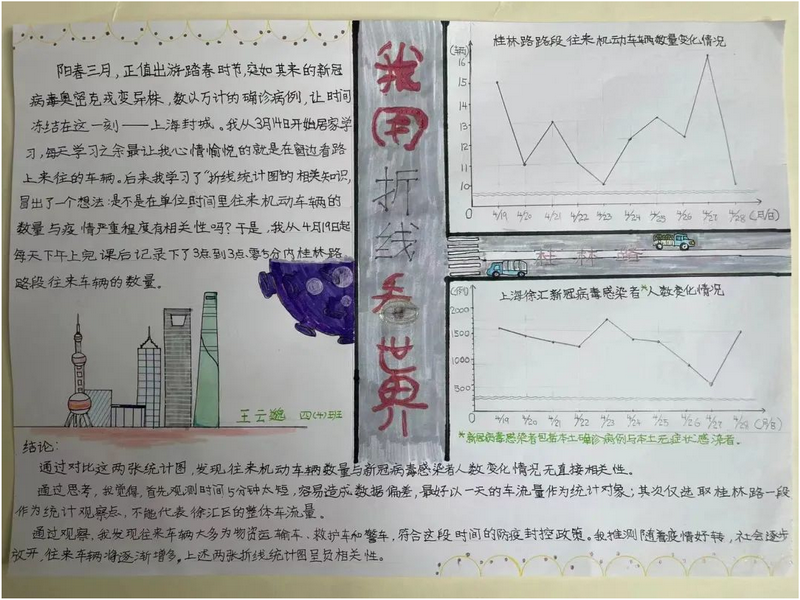 阳春三月，正值出游踏春时节，突如其来的新冠
病毒奥密克戎变异株，数以万计的确诊病例，让时间
冻结在这一刻——上海封城。我从3月14日开始居家学
习，每天学习之余最让我心情愉悦的就是在窗边看路
上来往的车辆。后来我学习了“折线统计图”的相关知识，
冒出了一个想法：是不是在单位时间里往来机动车辆的
数量与疫情严重程度有相关性吗？于是，我从4月19日起
每天下午上完课后记录下了3点到3点零5分内桂林路
路段往来车辆的数量。
王云 四(4)班
我用折线看世界
桂林路路段往来机动车辆数量变化情况
(辆)
16
15
14
13
12
11
10
4/19 4/20 4/21 4/22 4/23 4/24 4/25 4/26 4/27 4/28 (月/日)
桂林路
上海徐汇新冠病毒感染者*人数变化情况
(例)
2000
1500
1000
500
4/19 4/20 4/21 4/22 4/23 4/24 4/25 4/26 4/27 4/28 (月/日)
*新冠病毒感染者包括本土确诊病例与本土无症状感染者。
结论：
通过对比这两张统计图，发现往来机动车辆数量与新冠病毒感染者人数变化情况无直接相关性。
通过思考，我觉得，首先观测时间5分钟太短，容易造成数据偏差，最好以一天的车流量作为统计对象；其次仅选取桂林路一段
作为统计观察点，不能代表徐汇区的整体车流量。
通过观察，我发现往来车辆大多为物资运输车、救护车和警车，符合这段时间的防疫封控政策。我推测随着疫情好转，社会逐步
放开，往来车辆将逐渐增多。上述两张折线统计图呈负相关性。